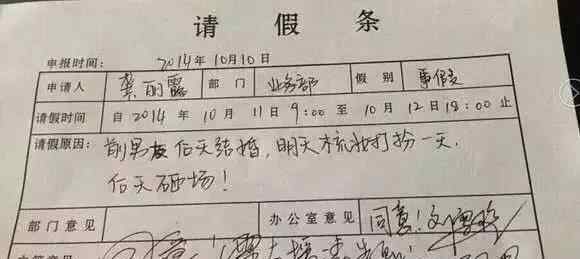 请假条
申报时间: 2014年10月10日
申请人 龚丽霞 部门 业务部 假别 事假
请假时间 自2014年10月11日9:00至10月12日18:00止
请假原因: 前男友后天结婚,明天梳妆打扮一天,
后天砸场!
部门意见 办公室意见 同意!